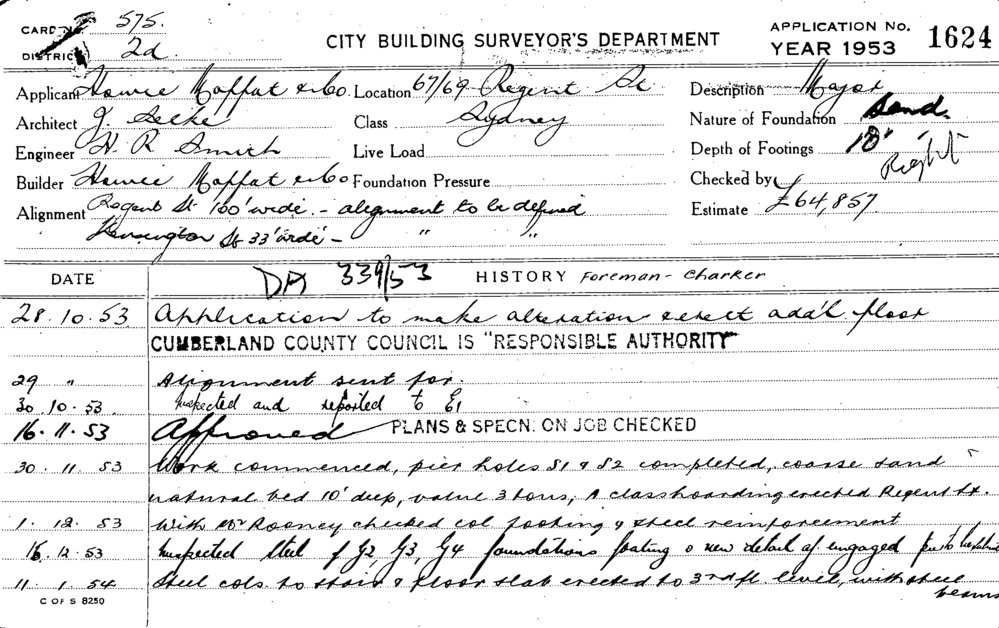 CARD No. 575.
DISTRICT 2d.
CITY BUILDING SURVEYOR'S DEPARTMENT
APPLICATION No.
YEAR 1953
1624
Applicant Howie Moffat & Co Location 67/69 Regent St Description Major
Architect J. Class Sydney Nature of Foundation Sand.
Engineer H R Smith Live Load Depth of Footings 10' Right
Builder Howie Moffat & Co Foundation Pressure Checked by
Alignment Regent St 100' wide. - alignment to be defined Estimate £64,857
Kensington St 33' wide - " "
DATE DA 339/53 HISTORY Foreman - Charker
28.10.53 Application to make alteration & erect add'l floor
CUMBERLAND COUNTY COUNCIL IS "RESPONSIBLE AUTHORITY"
29 " Alignment sent for.
30.10.53 Inspected and reported to E1
16.11.53 Approved PLANS & SPECN. ON JOB CHECKED
30.11.53 Work commenced, pier holes S1 & S2 completed, coarse sand
natural bed 10' deep, value 3 tons, A class hoarding erected Regent St.
1.12.53 With Mr Rooney checked col footing & steel reinforcement
16.12.53 Inspected steel f G2, G3, G4 foundations footing & new detail of engaged
11.1.54 Steel cols. to stair & floor slab erected to 3rd fl. level, with steel
beams
C OF S 8250